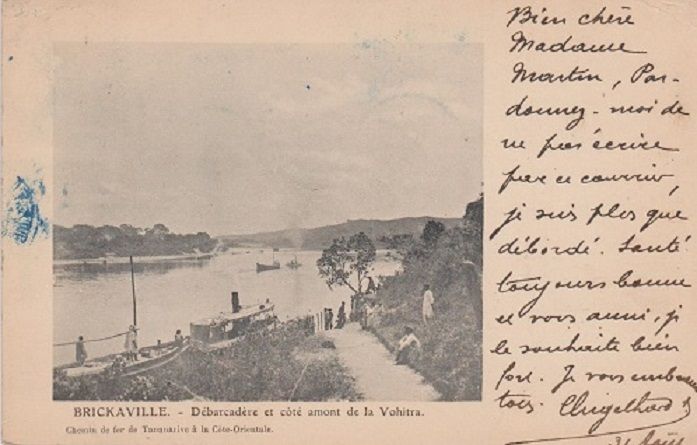 Bien chère
Madame
Martin, Par-
donnez-moi de
ne pas écrire
par ce courrier,
je suis plus que
débordé. Santé
toujours bonne
et vous aussi, je
le souhaite bien
fort. Je vous embrasse
tous.
BRICKAVILLE. - Débarcadère et côté amont de la Vohitra.
Chemin de fer de Tananarive à la Côte-Orientale.